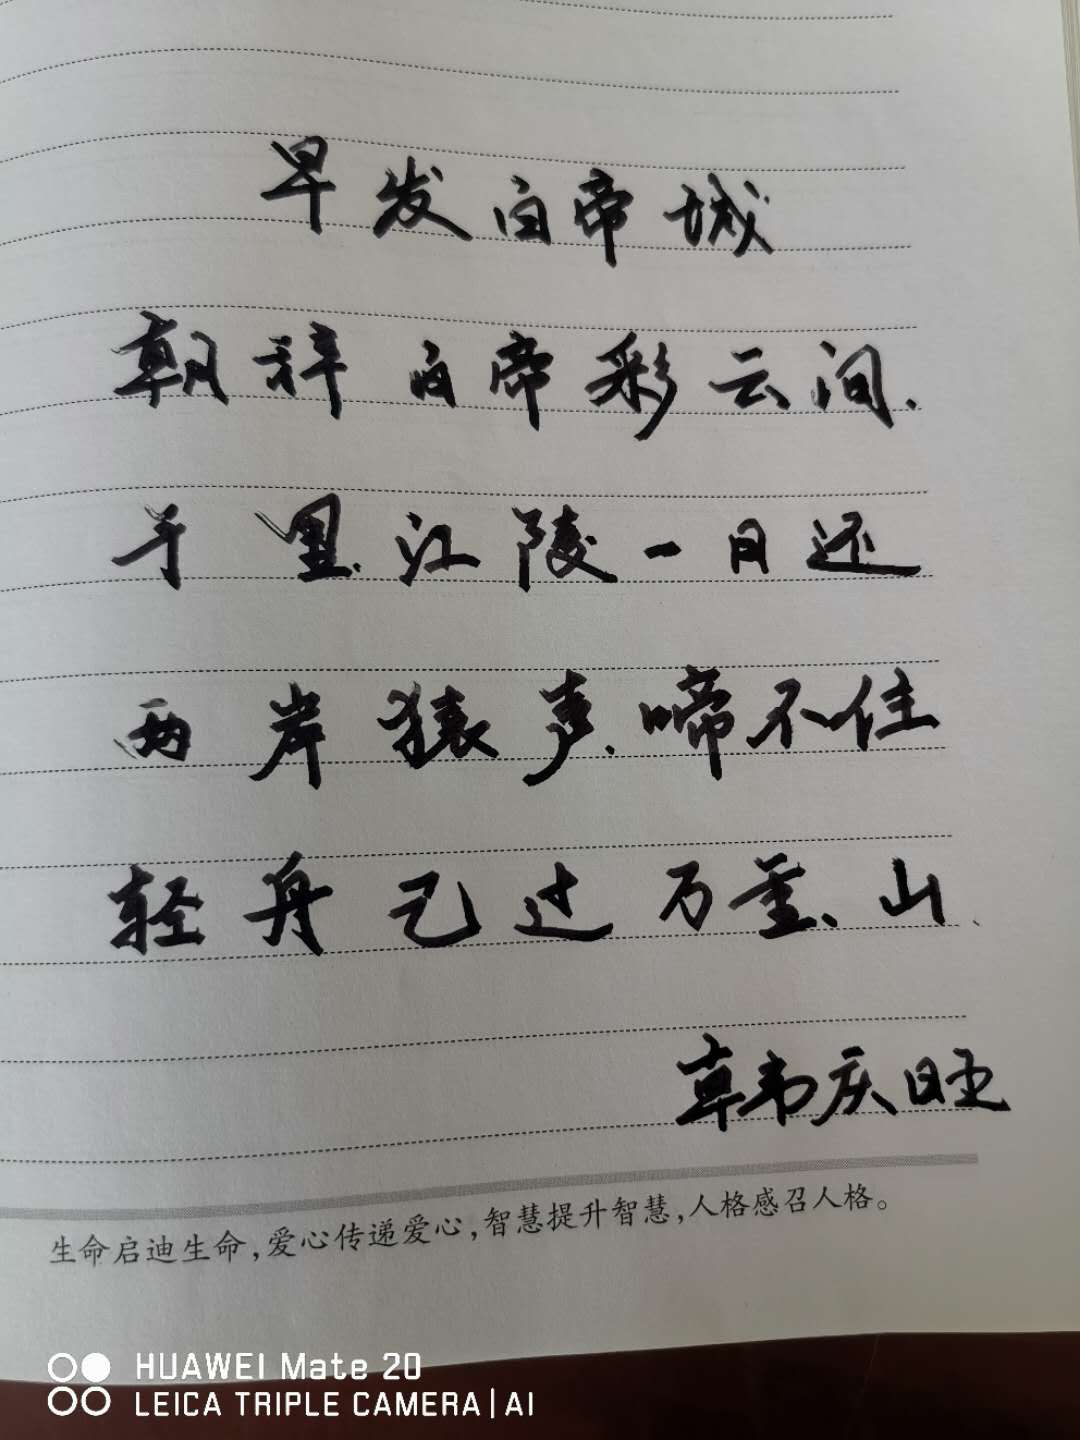 早发白帝城
朝辞白帝彩云间.
千里江陵一日还
两岸猿声啼不住
轻舟已过万重山、
韩庆旺
生命启迪生命，爱心传递爱心，智慧提升智慧，人格感召人格。
HUAWEI Mate 20
LEICA TRIPLE CAMERA|AI